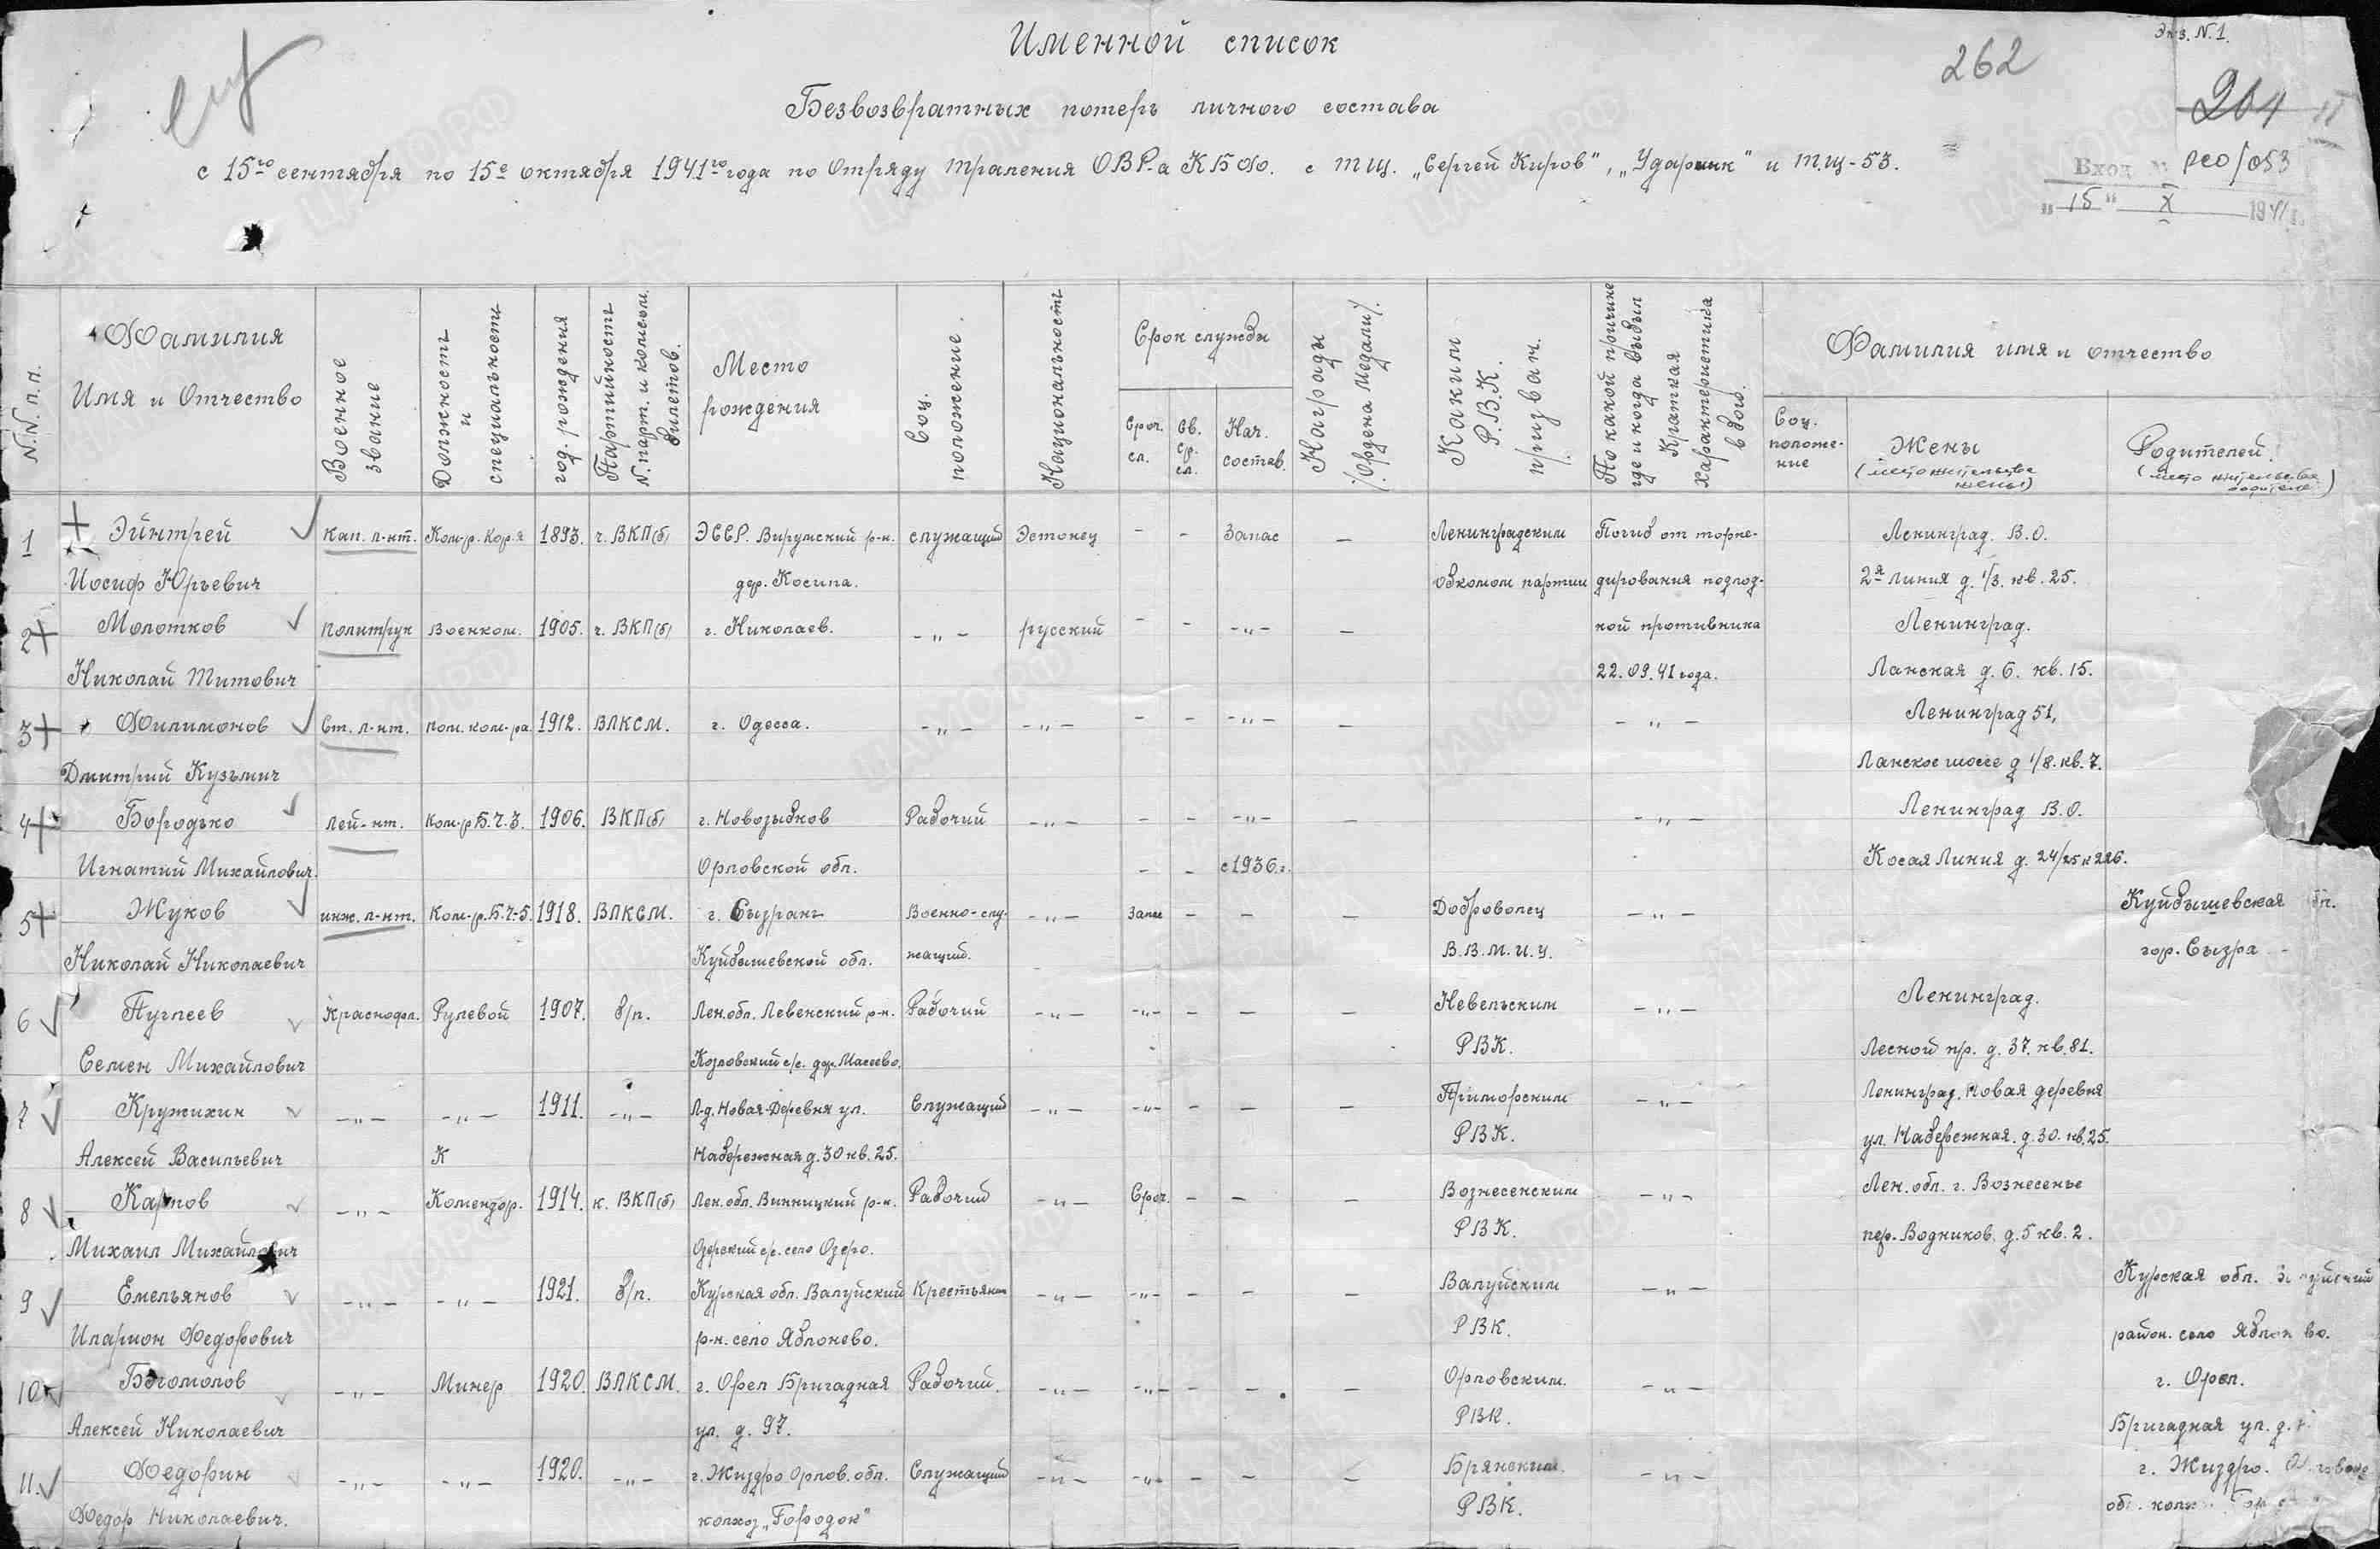 Экз. №1.
Именной список
262
264
Безвозвратных потерь личного состава
с 15го сентября по 15е октября 1941го года по Отряду траления ОВР-а КБФ. с ТЩ. „Сергей Киров", „Ударник" и ТЩ-53.
Вход №
" 15 " X 1941 г.
N.N. п.п.
Фамилия
Имя и Отчество
Военное звание
Должность и специальность
год. рождения
Партийность N. парт. и комсом. билетов.
Место
рождения
Соц. положение.
Национальность
Срок службы
Сроч. сл.
Св. ср. сл.
Нач. состав.
Награды /.Ордена Медали/.
Каким Р.В.К. призван.
По какой причине где и когда выбыл Краткая характеристика в бою.
Фамилия имя и отчество
Соц. положение
Жены
(место жительства жены)
Родителей.
(место жительства родителей)
1 Эйнтрей Кап. л-нт. Ком-р. Кор-я 1893. ч. ВКП(б) ЭССР. Вирумский р-н. служащий Эстонец - - Запас - Ленинградским Погиб от торпе- Ленинград. В.О.
Иосиф Юрьевич дер. Косипа. обкомом партии дирования подлод- 2я линия д. 1/3. кв. 25.
2 Молотков Политрук Военком. 1905. ч. ВКП(б) г. Николаев. -"- русский - - -"- - кой противника Ленинград.
Николай Титович 22.09.41 года. Ланская д. 6. кв. 15.
3 Филимонов Ст. л-нт. пом. ком-ра 1912. ВЛКСМ. г. Одесса. -"- -"- - - -"- - -"- Ленинград 51,
Дмитрий Кузьмич Ланское шоссе д 1/8. кв. 7.
4 Бородько лей-нт. Ком-р Б.Ч.3. 1906. ВКП(б) г. Новозыбков Рабочий -"- - - -"- - -"- Ленинград В.О.
Игнатий Михайлович. Орловской обл. - - с 1936 г. Косая Линия д. 24/25 к 226.
5 Жуков инж. л-нт. Ком-р. Б.Ч-5. 1918. ВЛКСМ. г. Сызрань Военно-слу- -"- Запас - - - Доброволец -"- Куйбышевская
Николай Николаевич Куйбышевской обл. жащий. В.В.М.И.У. гор. Сызра
6 Пуглеев Краснофл. Рулевой 1907. б/п. Лен.обл. Левенский р-н. Рабочий -"- -"- - - - Невельским -"- Ленинград.
Семен Михайлович Козловский с/с. дер. Масеево. РВК. Лесной пр. д. 37. кв. 81.
7 Кружихин -"- -"- 1911. -"- Л-д. Новая-Деревня ул. Служащий -"- -"- - - - Приморским -"- Ленинград. Новая деревня
Алексей Васильевич К Набережная д. 30 кв. 25. РВК. ул. Набережная. д. 30. кв. 25.
8 Карпов -"- Комендор. 1914. к. ВКП(б) Лен. обл. Винницкий р-н. Рабочий -"- Сроч. - - - Вознесенским -"- Лен. обл. г. Вознесенье
Михаил Михайлович Озерский с/с. село Озеро. РВК. пер. Водников. д. 5 кв. 2.
9 Емельянов -"- -"- 1921. б/п. Курская обл. Валуйский Крестьянин -"- -"- - - - Валуйским -"- Курская обл. Валуйский
Иларион Федорович р-н. село Яблонево. РВК. район. село Яблон во.
10 Богомолов -"- Минер 1920. ВЛКСМ. г. Орел Бригадная Рабочий. -"- -"- - - - Орловским. -"- г. Орел.
Алексей Николаевич ул. д. 97. РВК. Бригадная ул. д.
11. Федорин -"- -"- 1920. -"- г. Жиздро Орлов. обл. Служащий -"- -"- - - - Брянским. -"- г. Жиздро.
Федор Николаевич. колхоз „Городок" РВК.